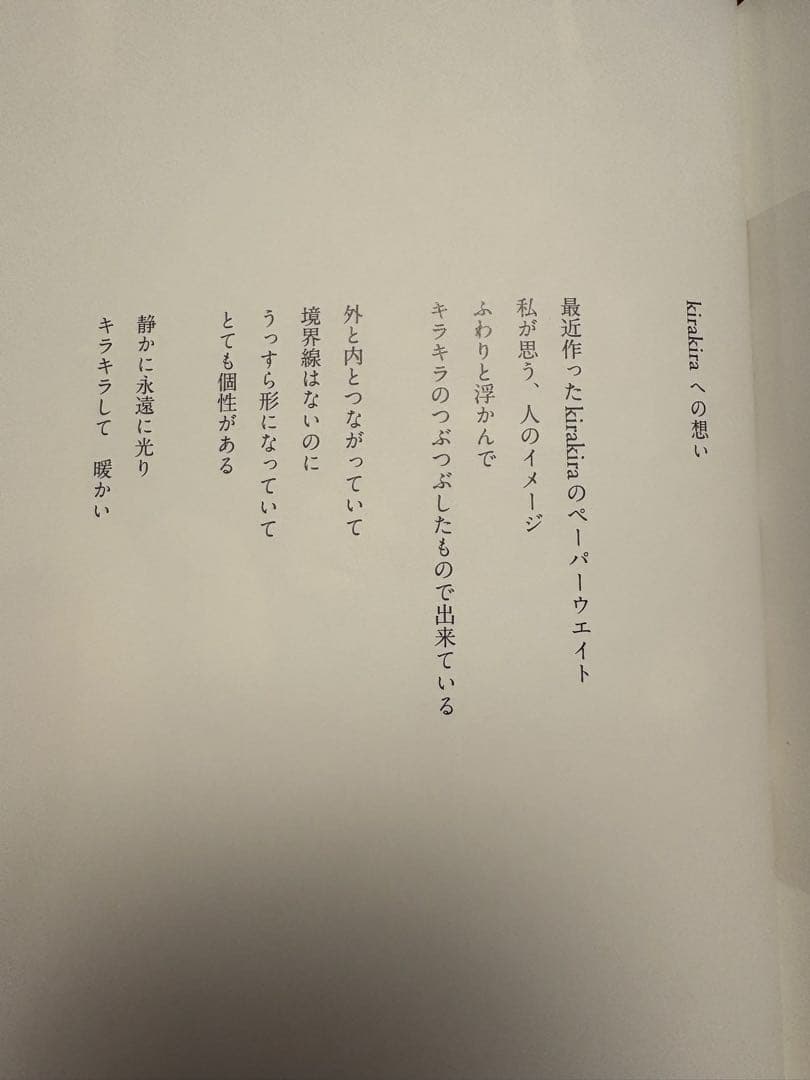 kirakira への想い
最近作った kirakira のペーパーウエイト
私が思う、人のイメージ
ふわりと浮かんで
キラキラのつぶつぶしたもので出来ている
外と内とつながっていて
境界線はないのに
うっすら形になっていて
とても個性がある
静かに永遠に光り
キラキラして 暖かい